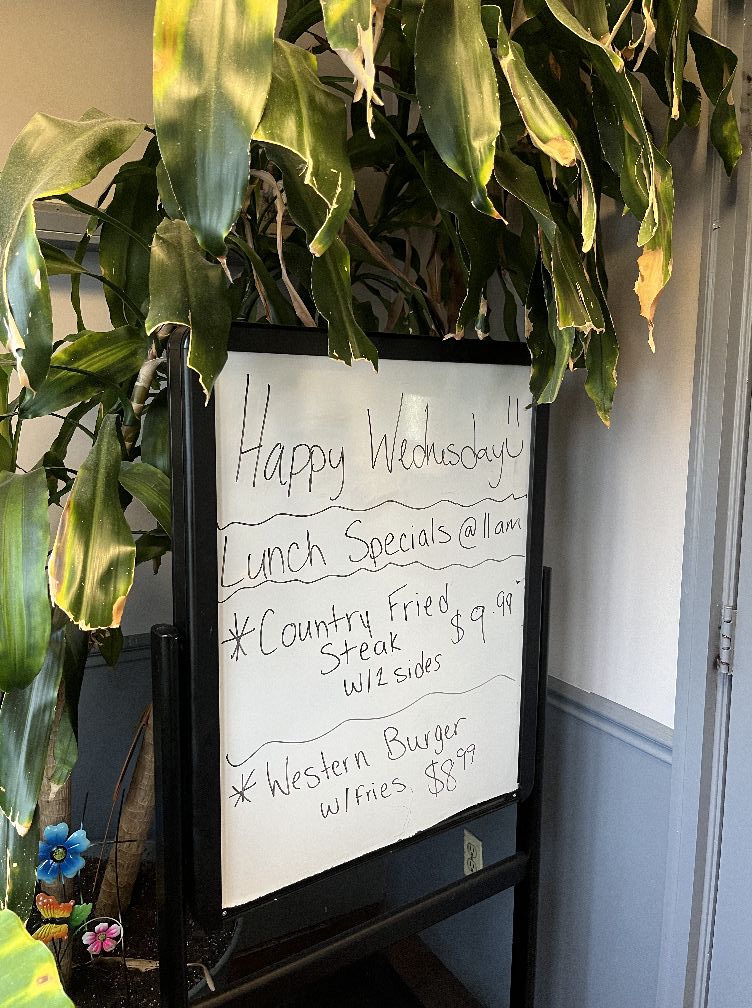 Happy Wednesday!!
Lunch Specials @ 11am
* Country Fried
Steak
w/2 sides
$9.99
* Western Burger
w/fries $8.99